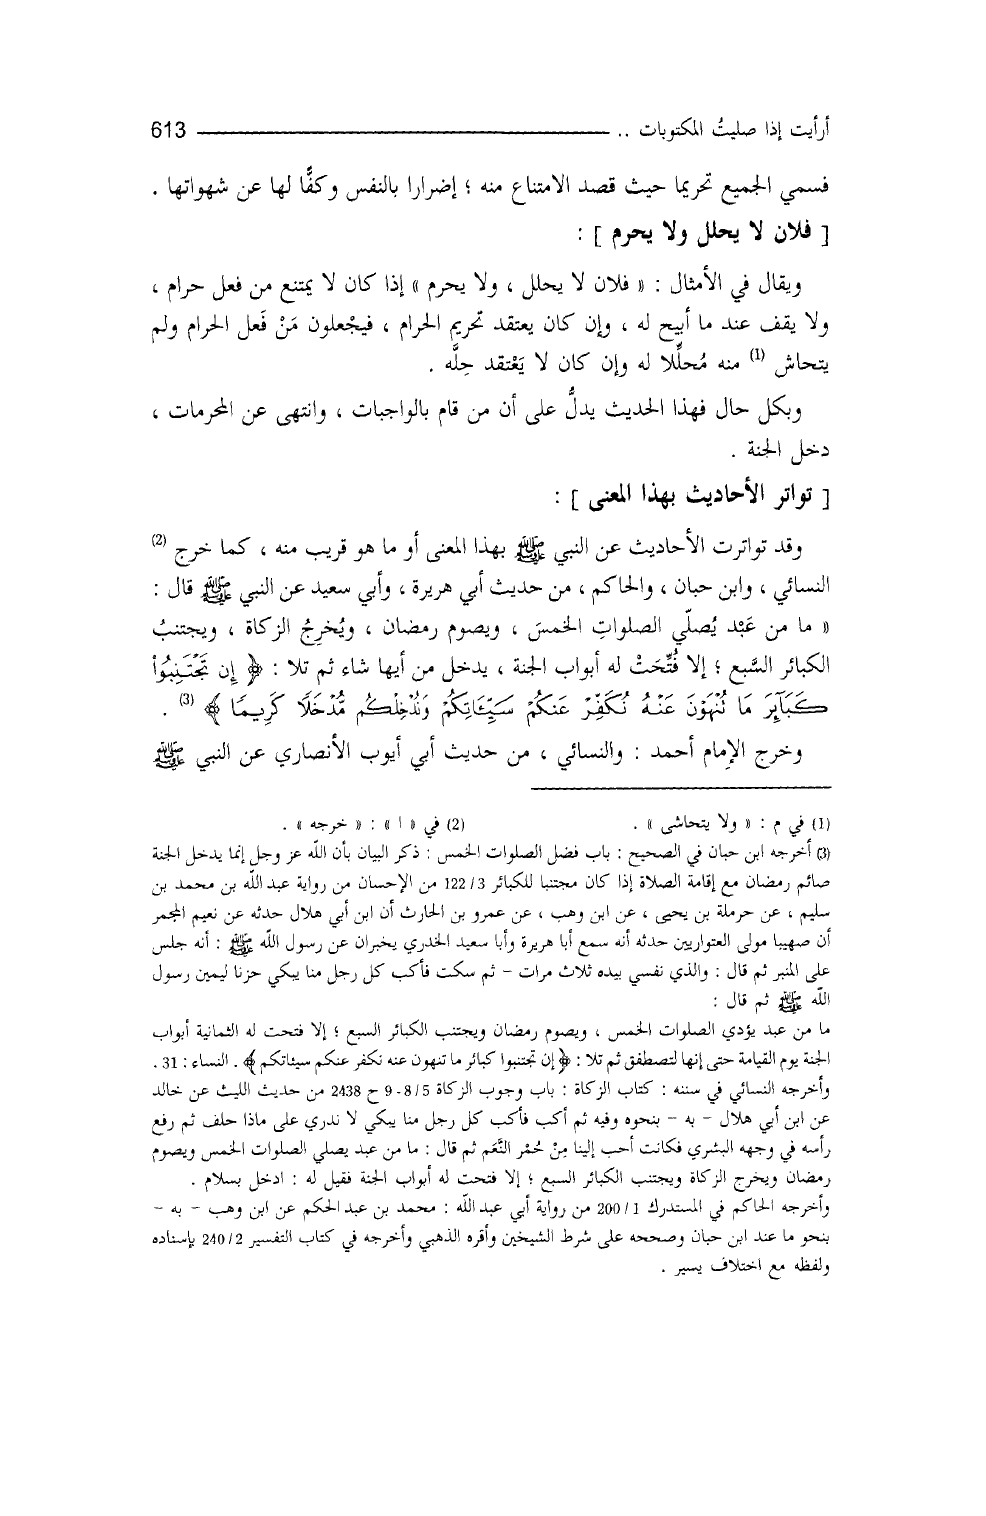 أرأيت إذا صليتُ المكتوبات .. 613
فسمي الجميع تحريما حيث قصد الامتناع منه ؛ إضرارا بالنفس وكفًّا لها عن شهواتها .
[ فلان لا يحلل ولا يحرم ] :
ويقال في الأمثال : « فلان لا يحلل ، ولا يحرم » إذا كان لا يمتنع من فعل حرام ،
ولا يقف عند ما أبيح له ، وإن كان يعتقد تحريم الحرام ، فيجْعلون مَنْ فَعل الحرام ولم
يتحاش (1) منه مُحلِّلا له وإن كان لا يَعْتقد حِلَّه .
وبكل حال فهذا الحديث يدلُّ على أن من قام بالواجبات ، وانتهى عن المحرمات ،
دخل الجنة .
[ تواتر الأحاديث بهذا المعنى ] :
وقد تواترت الأحاديث عن النبي ﷺ بهذا المعنى أو ما هو قريب منه ، كما خرج (2)
النسائي ، وابن حبان ، والحاكم ، من حديث أبي هريرة ، وأبي سعيد عن النبي ﷺ قال :
« ما من عَبْد يُصلّي الصلواتِ الخمسَ ، ويصوم رمضان ، ويُخرِجُ الزكاة ، ويجتنبُ
الكبائر السَّبع ؛ إلا فُتِّحَتْ له أبواب الجنة ، يدخل من أيها شاء ثم تلا : ﴿ إِن تَجْتَنِبُوا۟
كَبَآئِرَ مَا تُنْهَوْنَ عَنْهُ نُكَفِّرْ عَنكُمْ سَيِّـَٔاتِكُمْ وَنُدْخِلْكُم مُّدْخَلًا كَرِيمًا ﴾ (3) .
وخرج الإمام أحمد : والنسائي ، من حديث أبي أيوب الأنصاري عن النبي ﷺ
(1) في م : « ولا يتحاشى » . (2) في « ا » : « خرجه » .
(3) أخرجه ابن حبان في الصحيح : باب فضل الصلوات الخمس : ذكر البيان بأن الله عز وجل إنما يدخل الجنة
صائم رمضان مع إقامة الصلاة إذا كان مجتنبا للكبائر 122/3 من الإحسان من رواية عبد الله بن محمد بن
سليم ، عن حرملة بن يحيى ، عن ابن وهب ، عن عمرو بن الحارث أن ابن أبي هلال حدثه عن نعيم المجمر
أن صهيبا مولى العتواريين حدثه أنه سمع أبا هريرة وأبا سعيد الخدري يخبران عن رسول الله ﷺ : أنه جلس
على المنبر ثم قال : والذي نفسي بيده ثلاث مرات - ثم سكت فأكب كل رجل منا يبكي حزنا ليمين رسول
الله ﷺ ثم قال :
ما من عبد يؤدي الصلوات الخمس ، ويصوم رمضان ويجتنب الكبائر السبع ؛ إلا فتحت له الثمانية أبواب
الجنة يوم القيامة حتى إنها لتصطفق ثم تلا : ﴿ إن تجتنبوا كبائر ما تنهون عنه نكفر عنكم سيئاتكم ﴾ . النساء : 31 .
وأخرجه النسائي في سننه : كتاب الزكاة : باب وجوب الزكاة 8/5-9 ح 2438 من حديث الليث عن خالد
عن ابن أبي هلال - به - بنحوه وفيه ثم أكب فأكب كل رجل منا يبكي لا ندري على ماذا حلف ثم رفع
رأسه في وجهه البشري فكانت أحب إلينا مِنْ حُمْر النَّعَم ثم قال : ما من عبد يصلي الصلوات الخمس ويصوم
رمضان ويخرج الزكاة ويجتنب الكبائر السبع ؛ إلا فتحت له أبواب الجنة فقيل له : ادخل بسلام .
وأخرجه الحاكم في المستدرك 200/1 من رواية أبي عبد الله : محمد بن عبد الحكم عن ابن وهب - به -
بنحو ما عند ابن حبان وصححه على شرط الشيخين وأقره الذهبي وأخرجه في كتاب التفسير 240/2 بإسناده
ولفظه مع اختلاف يسير .